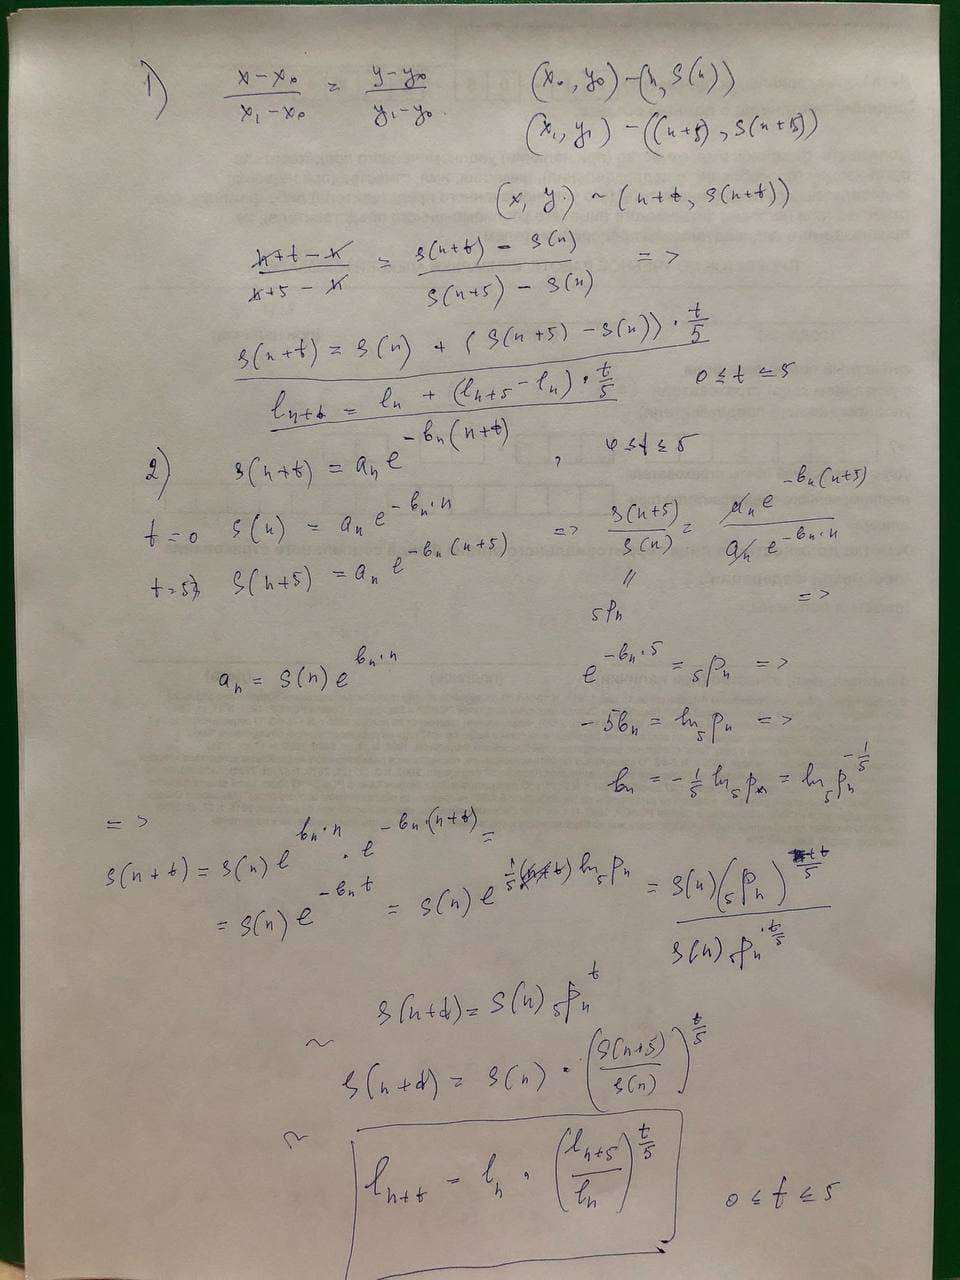 1) (x-x₀)/(x₁-x₀) = (y-y₀)/(y₁-y₀) (x₀, y₀) - (n, s(n))
(x₁, y₁) - ((n+5), s(n+5))
(x, y) ~ (n+t, s(n+t))
(n+t-n)/(n+5-n) = (s(n+t) - s(n))/(s(n+5) - s(n)) =>
s(n+t) = s(n) + (s(n+5) - s(n)) · t/5
l_{n+t} = l_n + (l_{n+5} - l_n) · t/5 0 ≤ t ≤ 5
2) s(n+t) = a_n e^{-b_n(n+t)}, 0 ≤ t ≤ 5
t=0 s(n) = a_n e^{-b_n·n} => s(n+5)/s(n) = (a_n e^{-b_n(n+5)})/(a_n e^{-b_n·n})
t=5 s(n+5) = a_n e^{-b_n(n+5)}
₅p_n =>
a_n = s(n) e^{b_n·n} e^{-b_n·5} = ₅p_n =>
-5b_n = ln ₅p_n =>
b_n = -1/5 ln ₅p_n = ln ₅p_n^{-1/5}
=>
s(n+t) = s(n) e^{b_n·n} · e^{-b_n·(n+t)} =
= s(n) e^{-b_n t} = s(n) e^{1/5 (n+t) ln ₅p_n} = s(n) (₅p_n)^{t/5}
s(n) ₅p_n^{t/5}
s(n+t) = s(n) ₅p_n^t
~ s(n+t) = s(n) · (s(n+5)/s(n))^{t/5}
~ l_{n+t} = l_n · (l_{n+5}/l_n)^{t/5} 0 ≤ t ≤ 5